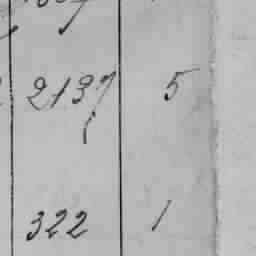 2137 5
322 1